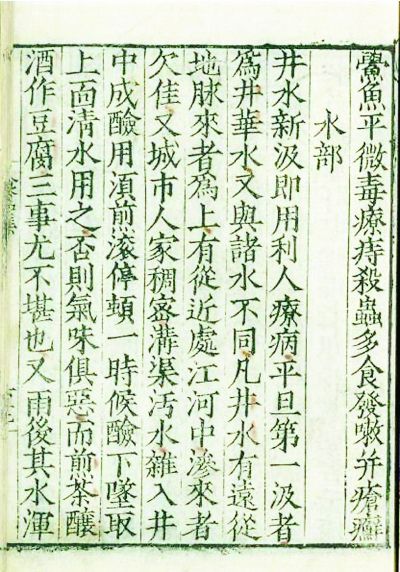 鱟魚平微毒療痔殺蟲多食發嗽并瘡癬
水部
井水新汲即用利人療病平旦第一汲者
爲井華水又與諸水不同凡井水有遠從
地脉來者爲上有從近處江河中滲來者
欠佳又城市人家稠密溝渠汚水雜入井
中成鹼用須煎滾停頓一時候鹼下墜取
上面清水用之否則氣味俱惡而前茶釀
酒作豆腐三事尤不堪也又雨後其水渾